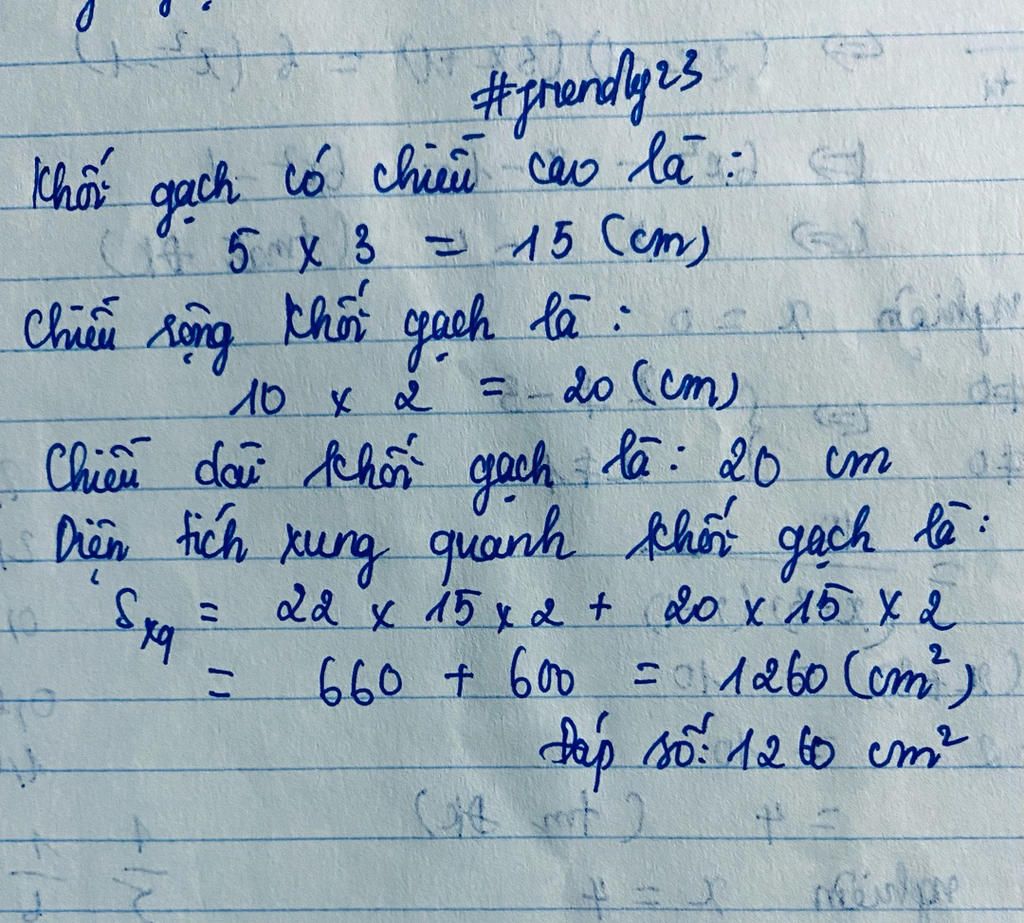 #friendly23
Khối gạch có chiều cao là:
5 x 3 = 15 (cm)
Chiều rộng khối gạch là:
10 x 2 = 20 (cm)
Chiều dài khối gạch là: 20 cm
Diện tích xung quanh khối gạch là:
Sxq = 22 x 15 x 2 + 20 x 15 x 2
= 660 + 600 = 1260 (cm²)
Đáp số: 1260 cm²